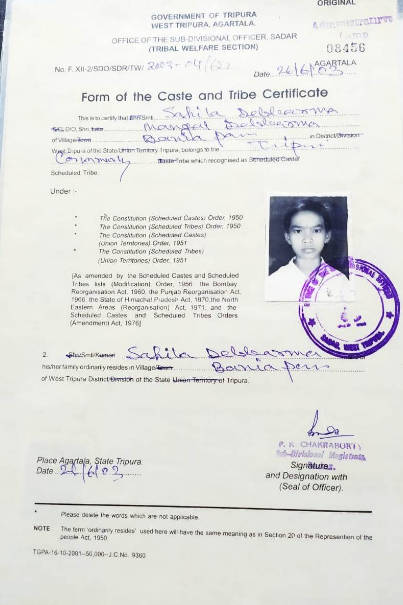 ORIGINAL
GOVERNMENT OF TRIPURA
WEST TRIPURA, AGARTALA.
OFFICE OF THE SUB-DIVISIONAL OFFICER, SADAR
(TRIBAL WELFARE SECTION)
Administrative
Camp
08456
No. F. XII-2/SDO/SDR/TW/ 2003-04/
AGARTALA
Date 26/6/03
Form of the Caste and Tribe Certificate
This is to certify that Shri/Smti Sahila Debbarma
S/O, D/O, Shri, Late Mangal Debbarma
of Village/Town Bania para in District/Division
West Tripura of the State/Union Territory Tripura, belongs to the Tripuri
Community Caste/Tribe which recognised as Scheduled Caste/
Scheduled Tribe.
Under :-
* The Constitution (Scheduled Castes) Order, 1950
* The Constitution (Scheduled Tribes) Order, 1950
* The Constitution (Scheduled Castes)
(Union Territories) Order, 1951
* The Constitution (Scheduled Tribes)
(Union Territories) Order, 1951
[As amended by the Scheduled Castes and Scheduled
Tribes lists (Modification) Order, 1956, the Bombay
Reorganisation Act, 1960, the Punjab Reorganisation Act,
1966, the State of Himachal Pradesh Act, 1970, the North
Eastern Areas (Reorganisation) Act, 1971, and the
Scheduled Castes and Scheduled Tribes Orders
(Amendment) Act, 1976]
2. Shri/Smti/Kumari Sahila Debbarma
his/her/family ordinary resides in Village/Town Bania para
of West Tripura District/Division of the State Union Territory of Tripura.
P. K. CHAKRABORTY
Sub-Divisional Magistrate
Place Agartala, State Tripura.
Date 26/6/03
Signature
and Designation with
(Seal of Officer).
SADAR, WEST TRIPURA.
* Please delete the words which are not applicable.
NOTE The term 'ordinarily resides' used here will have the same meaning as in Section 20 of the Represention of the
people Act, 1950
TGPA-16-10-2001--50,000--J.C.No. 9360